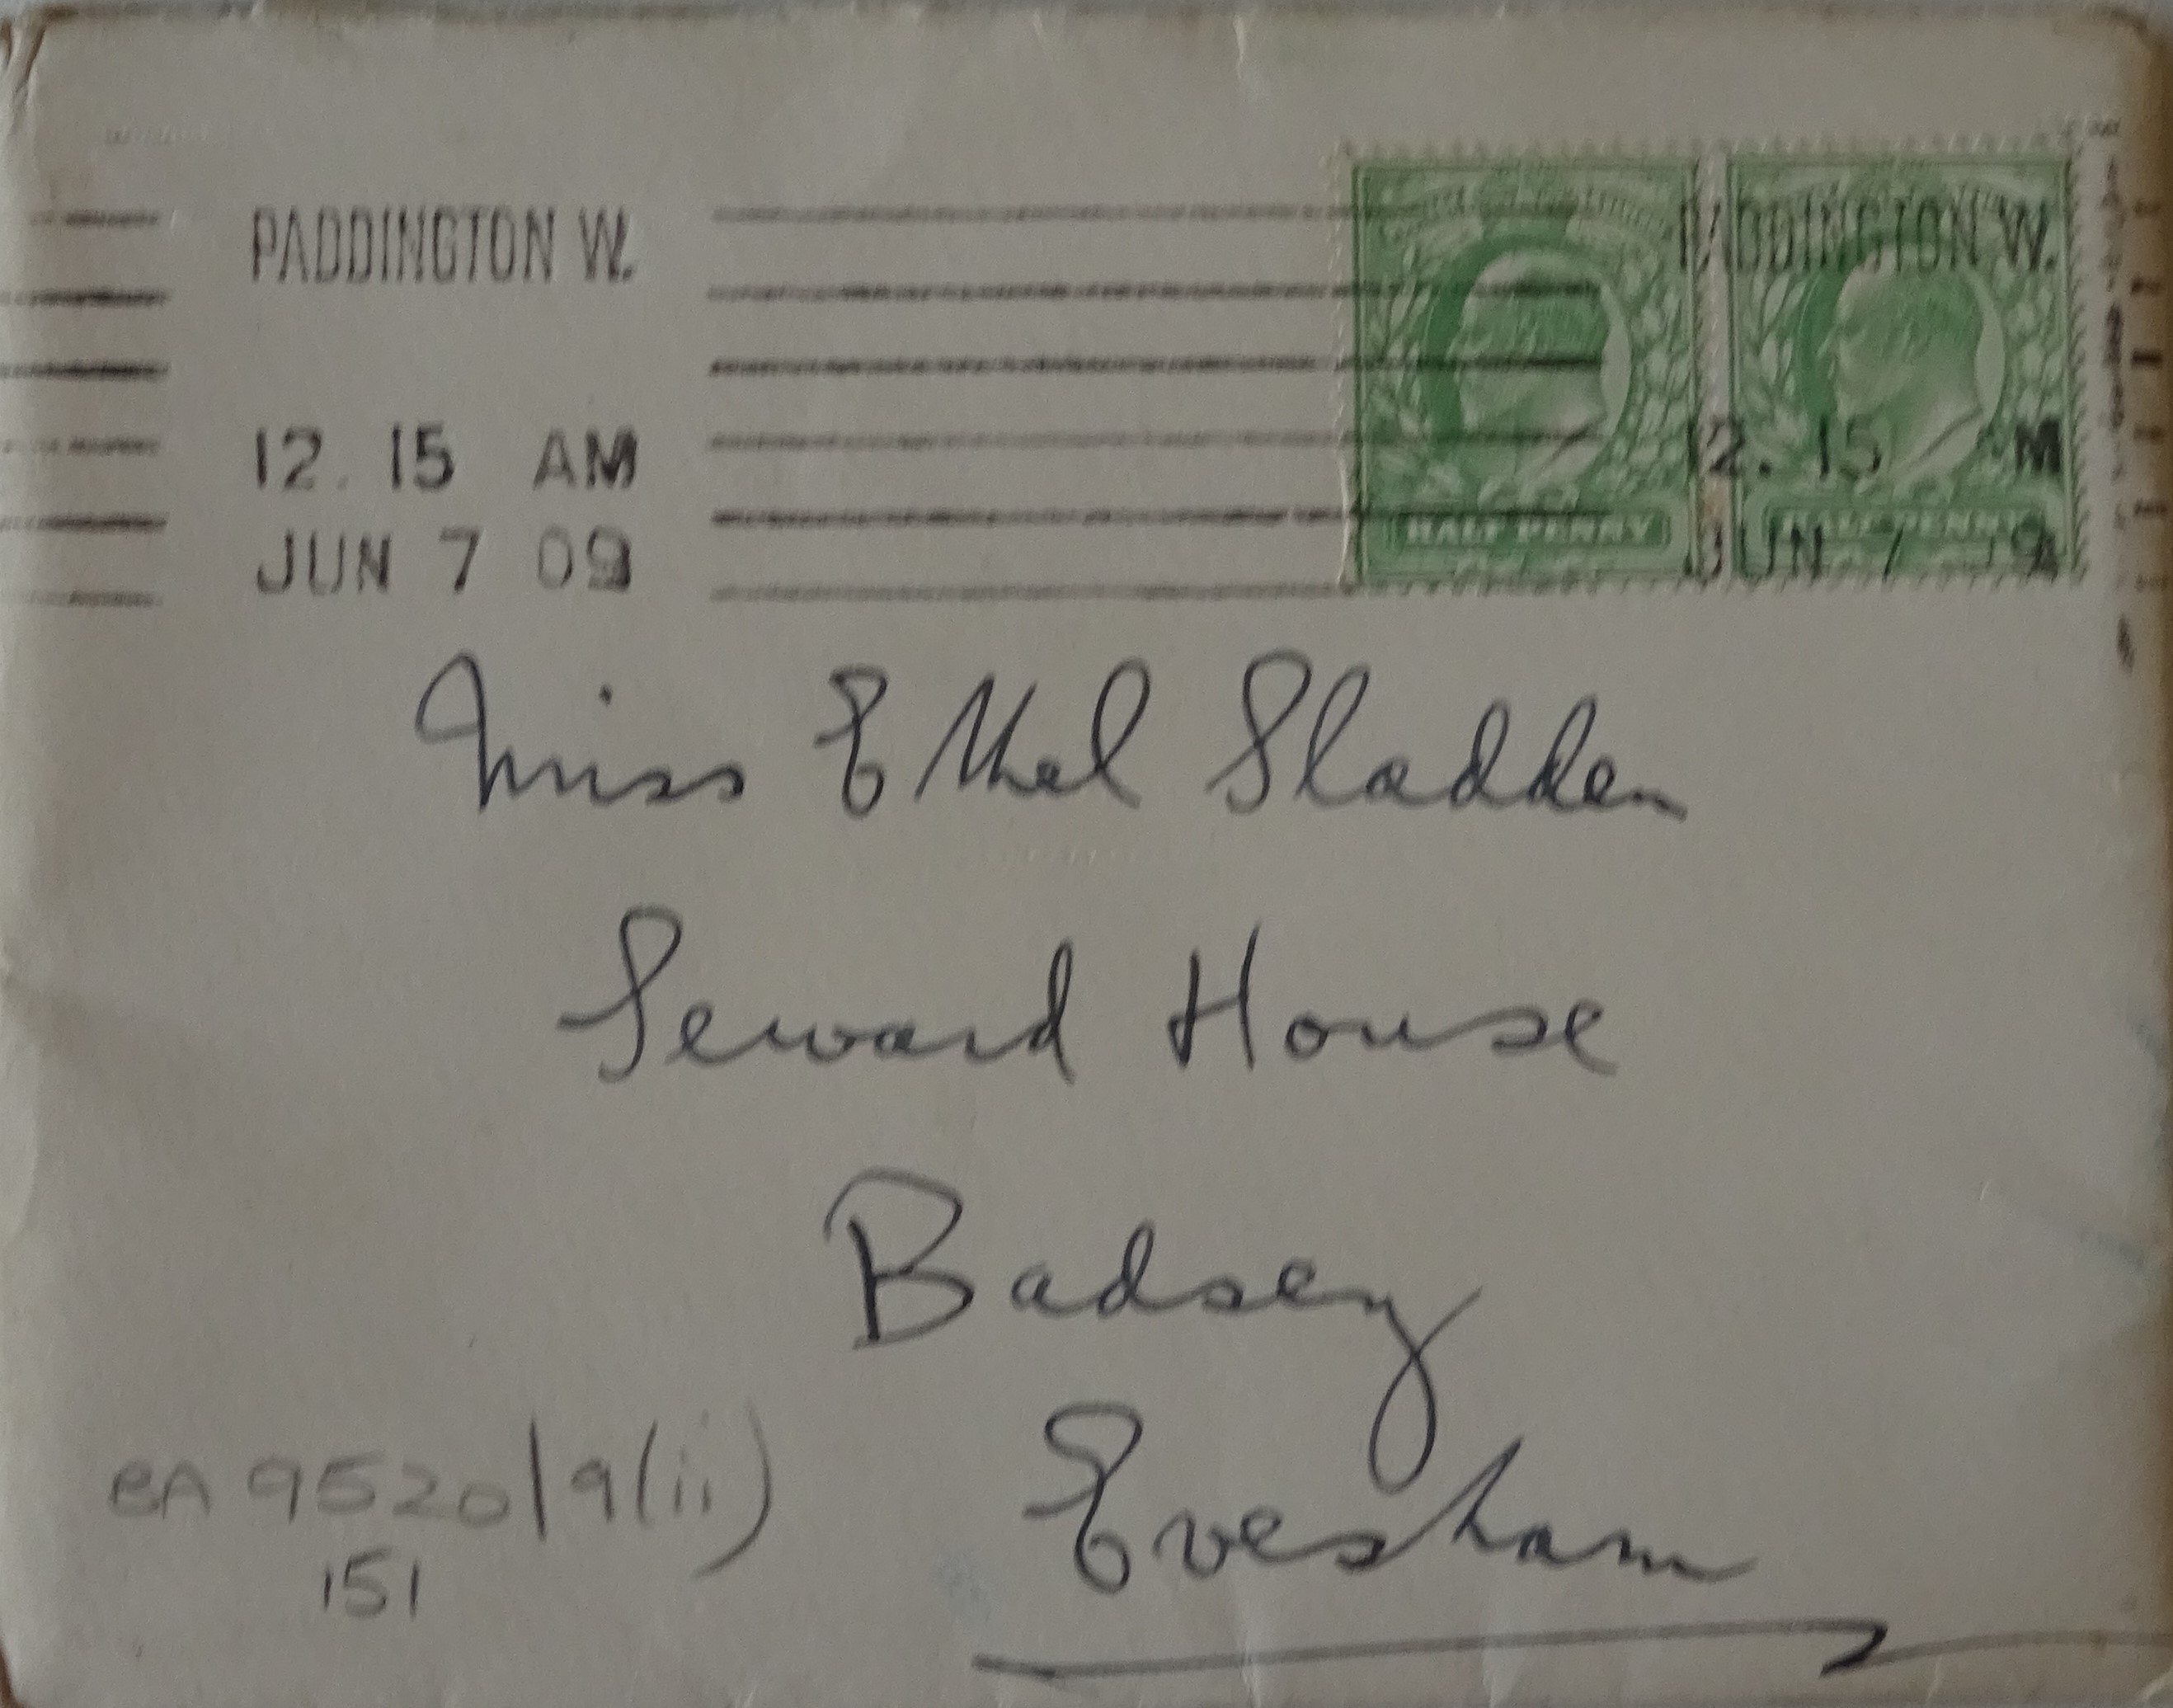 PADDINGTON W. PADDINGTON W.
12. 15 AM 12. 15 M
JUN 7 09 JUN 7 9
HALF PENNY HALF PENNY
Miss Ethel Sladden
Seward House
Badsey
Evesham
BA 9520/9(ii)
151